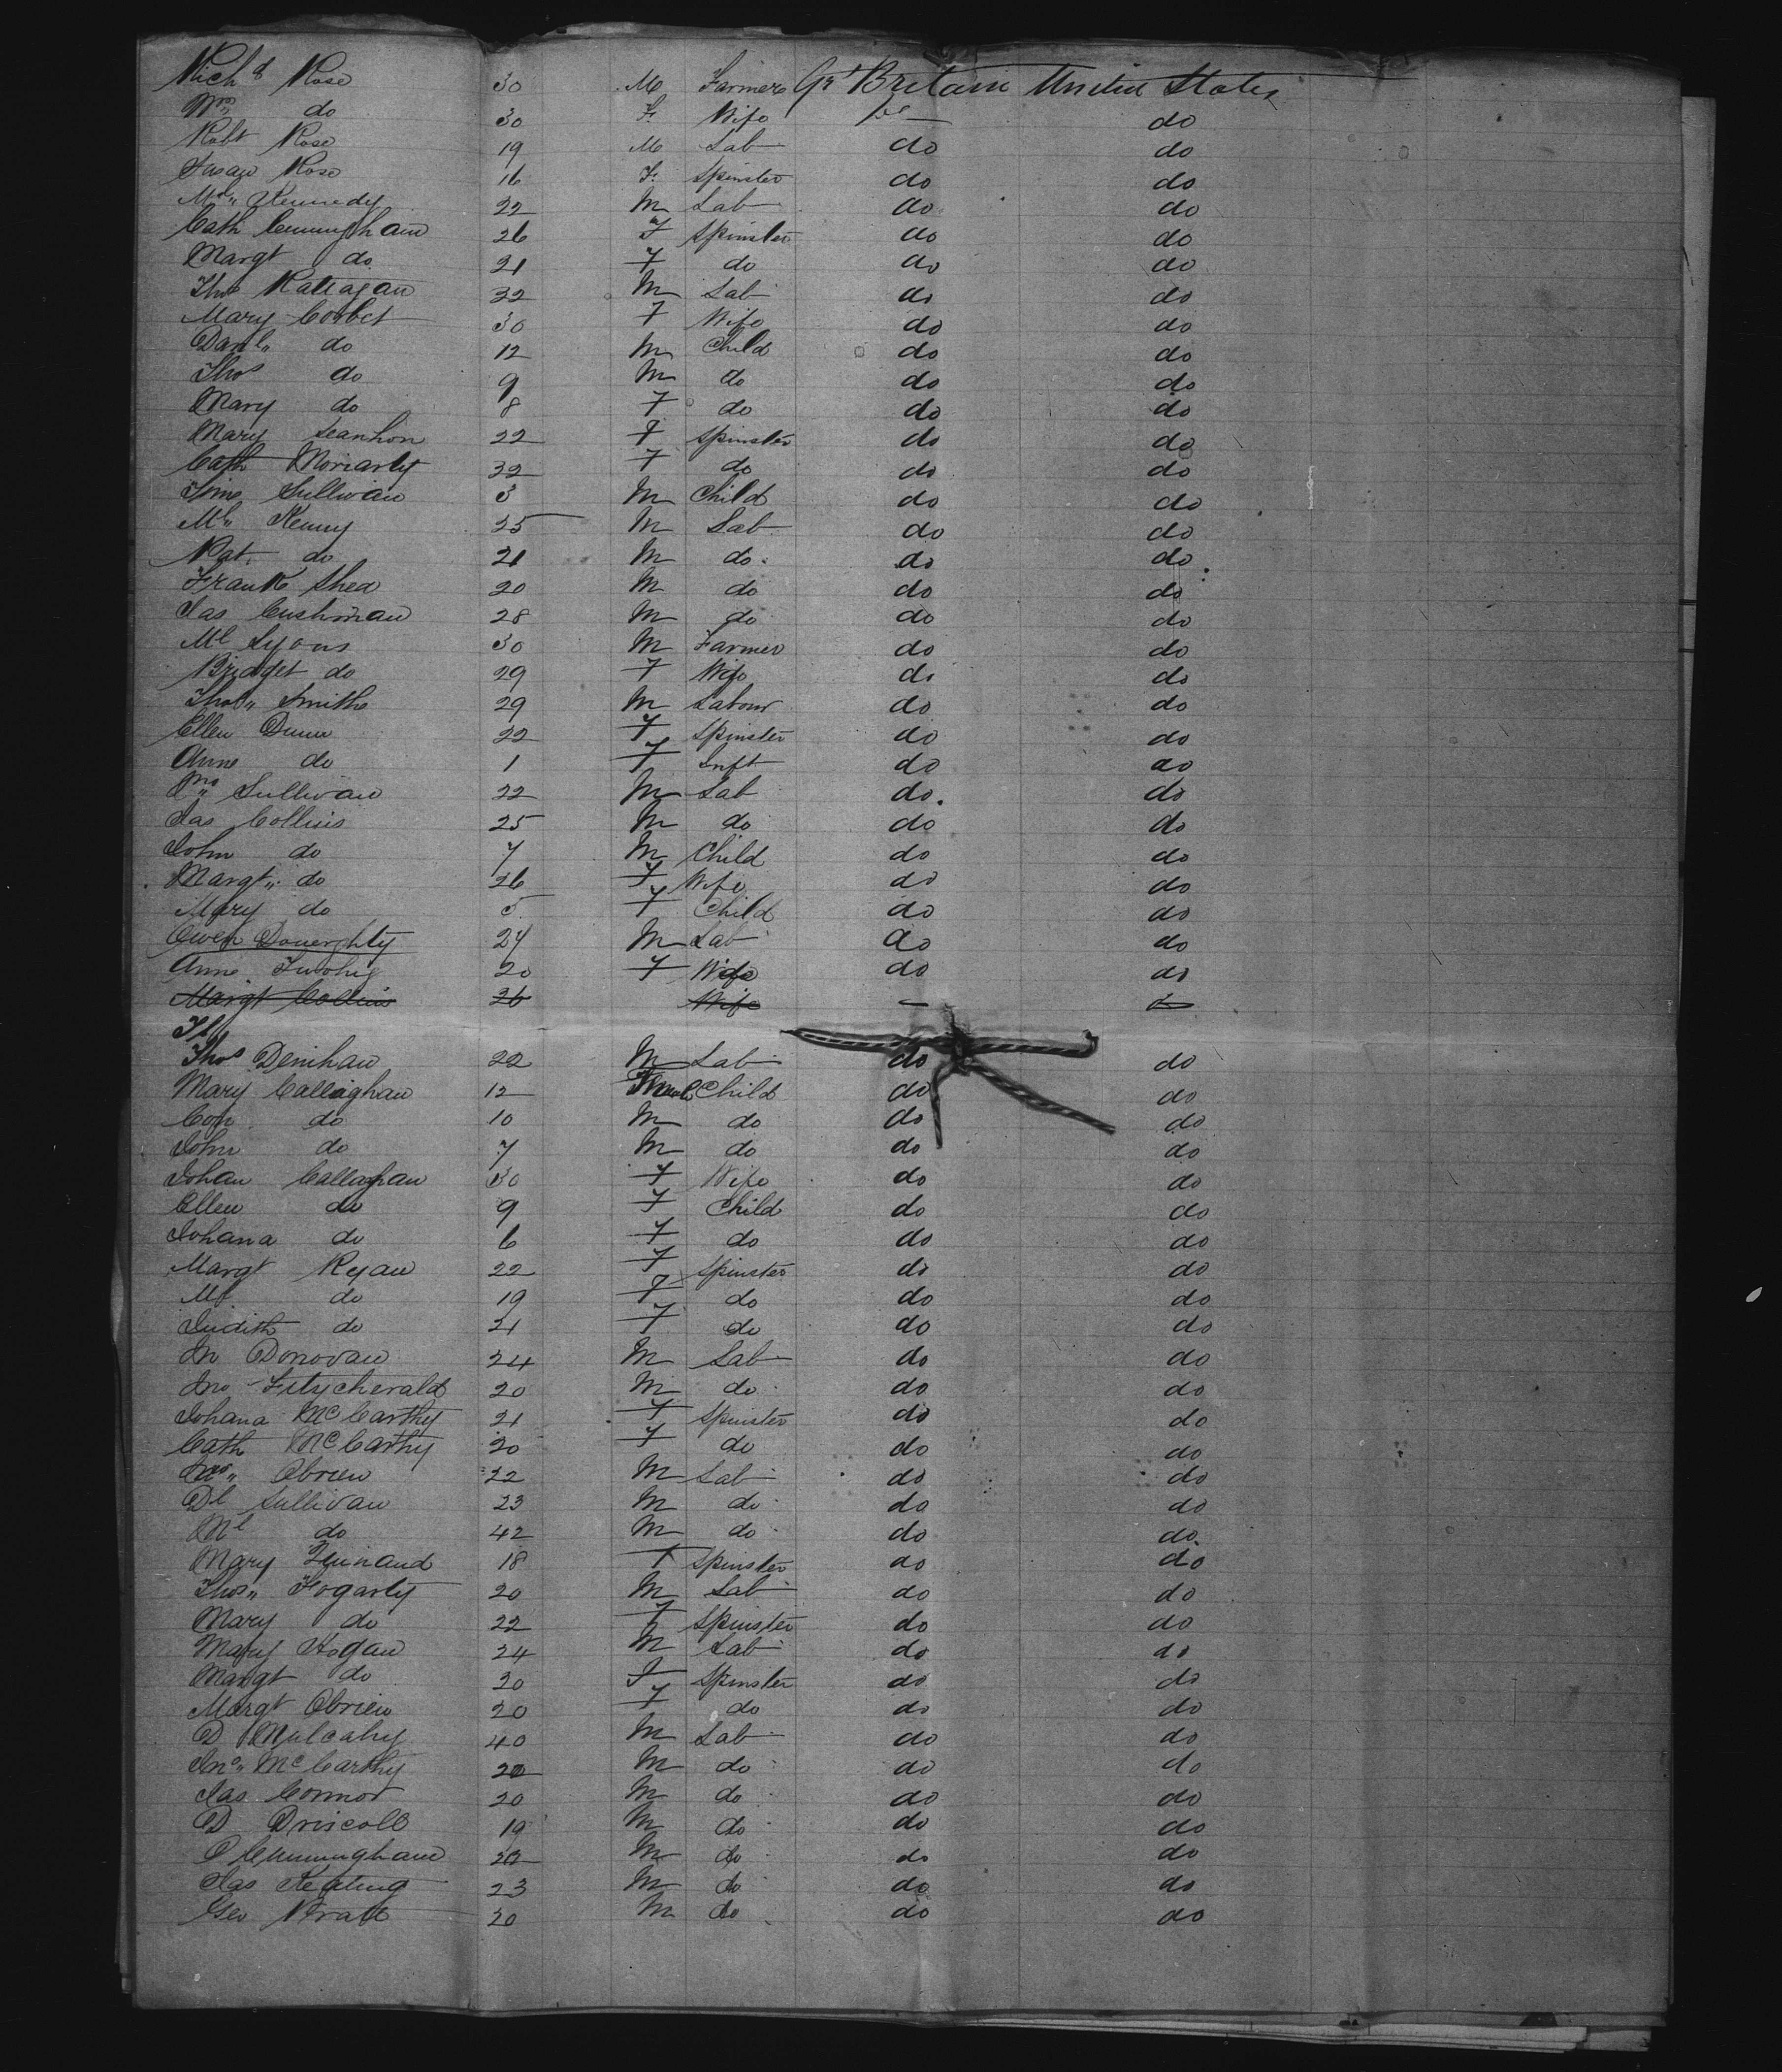 Rich d Rose 30 M Farmer Gt Britain United States
Mrs do 30 F. Wife Do do
Robt Rose 19 M Lab do do
Susan Rose 16 F. Spinster do do
Kennedy 22 M Lab do do
Cath Cunningham 26 F Spinster do do
Margt do 21 F do do do
Thos 32 M Lab do do
Mary Corbet 30 F Wife do do
Danl do 12 M Child do do
Thos do 9 M do do do
Mary do 8 F do do do
Mary Scanlon 22 F Spinster do do
Cath Moriarty 32 F do do do
Sullivan 3 M Child do do
Ml Kenny 25 M Lab do do
Pat. do 21 M do do do
Frank Shea 20 M do do do
Jas Cushman 28 M do do do
Ml Lyons 30 M Farmer do do
Bridget do 29 F Wife do do
Thos Smith 29 M Labour do do
Ellen Dunn 22 F Spinster do do
Anne do 1 F Inft do do
Sullivan 22 M Lab do. do
Jas Collins 25 M do do do
John do 7 M Child do do
Margt do 26 F Wife do do
Mary do 5 F Child do do
Owen Doherty 24 M Lab do do
Anne Twohig 20 F Wife do do
Margt Collins 26 Wife
Th
Thos Denihan 22 M Lab do do
Mary Callaghan 12 Child do do
Con do 10 M do do do
John do 7 M do do do
Johan Callaghan 30 F Wife do do
Ellen do 9 F Child do do
Johana do 6 F do do do
Margt Ryan 22 F Spinster do do
do 19 F do do do
Judith do 21 F do do do
Jn Donovan 24 M Lab do do
Jno Fitzcherald 20 M do do do
Johana McCarthy 21 F Spinster do do
Cath McCarthy 20 F do do do
Jno Obrien 22 M Lab do do
Dl Sullivan 23 M do do do
Ml do 42 M do do do
Mary Guinand 18 F Spinster do do
Thos Fogarty 20 M Lab do do
Mary do 22 F Spinster do do
Mary Hogan 24 M Lab do do
Margt do 20 F Spinster do do
Margt Obrien 20 F do do do
D Mulcahy 40 M Lab do do
Jno McCarthy 20 M do do do
Jas Connor 20 M do do do
D Driscoll 19 M do do do
O Cunningham 20 M do do do
Jas Keating 23 M do do do
Geo Pratt 20 M do do do